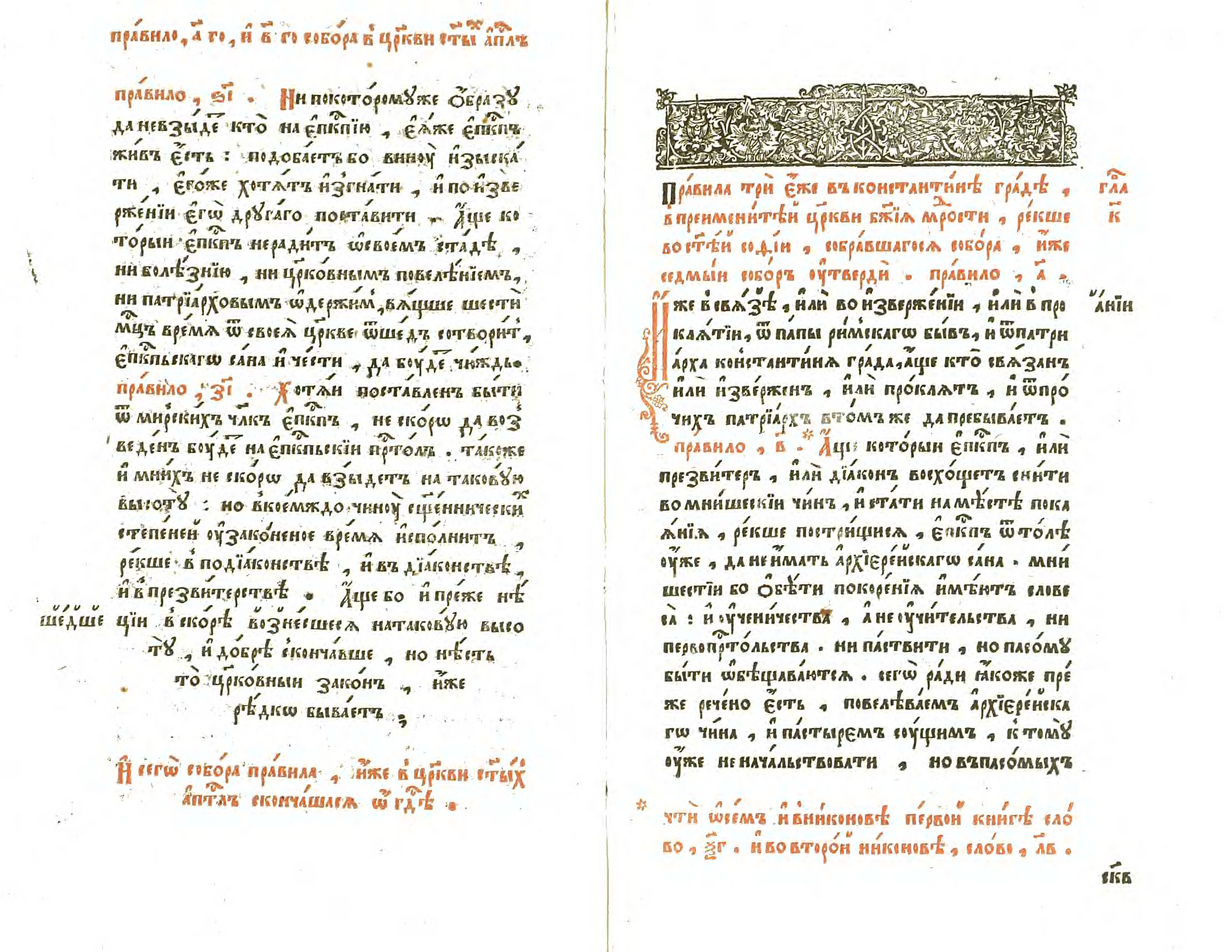 пра́вило, а҃ го, и҆ в҃ го собо́ра в̾ цр҃кви ст҃ы́х а҆пⷭ҇лъ
пра́вило, ѕ҃і. Ни по кото́рому же ѻ҆́бразу
да не взы́де кто̀ на є҆пкⷭ҇пі́ю, є҆ѧ́же є҆пкⷭ҇пъ
жи́въ є҆́сть: подоба́етъ бо винꙋ̀ и҆зыска́
ти, є҆го́же хотѧ́тъ и҆згна́ти, и҆ по и҆зве
рже́нїи є҆гѡ̀ дрꙋга́го поста́вити. А҆́ще ко
то́рыи є҆пкⷭ҇пъ неради́тъ ѡ҆ свое́мъ ста́дѣ,
ни болѣ́знїю, ни цр҃ко́внымъ повелѣ́нїемъ,
ни патрїа́рховымъ ѡ҆держи́м, вѧ́щше шести́
мц҃ъ вре́мѧ ѿ своеѧ̀ цр҃кве ѿше́дъ сотвори́т,
є҆пкⷭ҇пьскагѡ са́на и҆ че́сти, да бꙋ́де чю́ждь.
пра́вило, з҃і. Хотѧ́и поста́вленъ бы́ти
ѿ мирски́хъ чл҃къ є҆пкⷭ҇пъ, не ско́рѡ да воз
веде́нъ бꙋ́де на є҆пкⷭ҇пьскїи прⷭ҇то́лъ. та́коже
и҆ мни́хъ не ско́рѡ да взы́детъ на такову́ю
высотꙋ̀: но в̾ кое́мждо чинꙋ̀ сщ҃е́ннических
степене́й ᲂу҆зако́неное вре́мѧ и҆спо́лнитъ,
ре́кше в̾ подїа́конствѣ, и҆ въ дїа́конствѣ,
и҆ в пре́звитерствѣ. А҆́ще бо и҆ пре́же нѣ́
ше́дше
цїи в̾ ско́рѣ возне́сшесѧ на такову́ю высо
тꙋ̀, и҆ до́брѣ сконча́вше, но нѣ́сть
то̀ цр҃ко́вныи зако́нъ, и҆́же
рѣ́дкѡ быва́етъ;
И҆ сегѡ̀ собо́ра пра́вила, и҆́же в̾ цр҃кви ст҃ы́х
а҆пⷭ҇лъ сконча́шасѧ ѡ҆ гдⷭ҇ѣ.
Пра́вила трѝ є҆́же въ константи́нѣ гра́дѣ,
в преимени́тѣй цр҃кви бж҃їѧ мⷣрости, ре́кше
во ст҃ѣ́й софі́и, собра́вшагосѧ собо́ра, и҆́же
седмы́и собо́ръ ᲂу҆твердѝ. пра́вило, а҃.
гла̑
к҃
И҆́же в̾ свѧ́зѣ, и҆лѝ во и҆зверже́нїи, и҆лѝ в про
а́нїи
каѧ́тїи, ѿ па́пы ри́мскагѡ бы́въ, и҆ ѿ патри
а́рха константи́нѧ гра́да, а҆́ще кто̀ свѧ́занъ
и҆лѝ и҆зве́рженъ, и҆лѝ про́клѧтъ, и҆ ѿ про́
чихъ патрїа́рхъ в то́мъ же да пребыва́етъ.
пра́вило, в҃. * А҆́ще кото́рыи є҆пкⷭ҇пъ, и҆лѝ
презви́теръ, и҆лѝ дїа́конъ восхо́щетъ сни́ти
во мни́шескїи чи́нъ, и҆ ста́ти на мѣ́стѣ пока
ѧ́нїѧ, ре́кше постри́щисѧ, є҆пкⷭ҇пъ ѿто́лѣ
ᲂу҆́же, да не и҆́мать а҆рхїере́йскагѡ са́на. мни́
шестїи бо ѻ҆бѣ́ти покоре́нїѧ и҆мѣ́ютъ слове
са̀: и҆ ᲂу҆чени́чества, а҆ не ᲂу҆чи́тельства, ни
первопрⷭ҇то́льства. ни па́ствити, но пасо́мꙋ
бы́ти ѡ҆бѣщава́ютсѧ. сегѡ̀ ра́ди ꙗ҆́коже пре́
же рече́но є҆́сть, повелѣва́емъ а҆рхїере́йска
гѡ чи́на, и҆ па́стыремъ сꙋ́щимъ, к̾ томꙋ̀
ᲂу҆́же не нача́льствовати, но въ пасо́мыхъ
* чтѝ ѡ҆ се́мъ и҆ в ни́коновѣ пе́рвой кни́гѣ сло́
во, ѯ҃г. и҆ во второ́й ни́коновѣ, сло́во, л҃в.
ск҃в